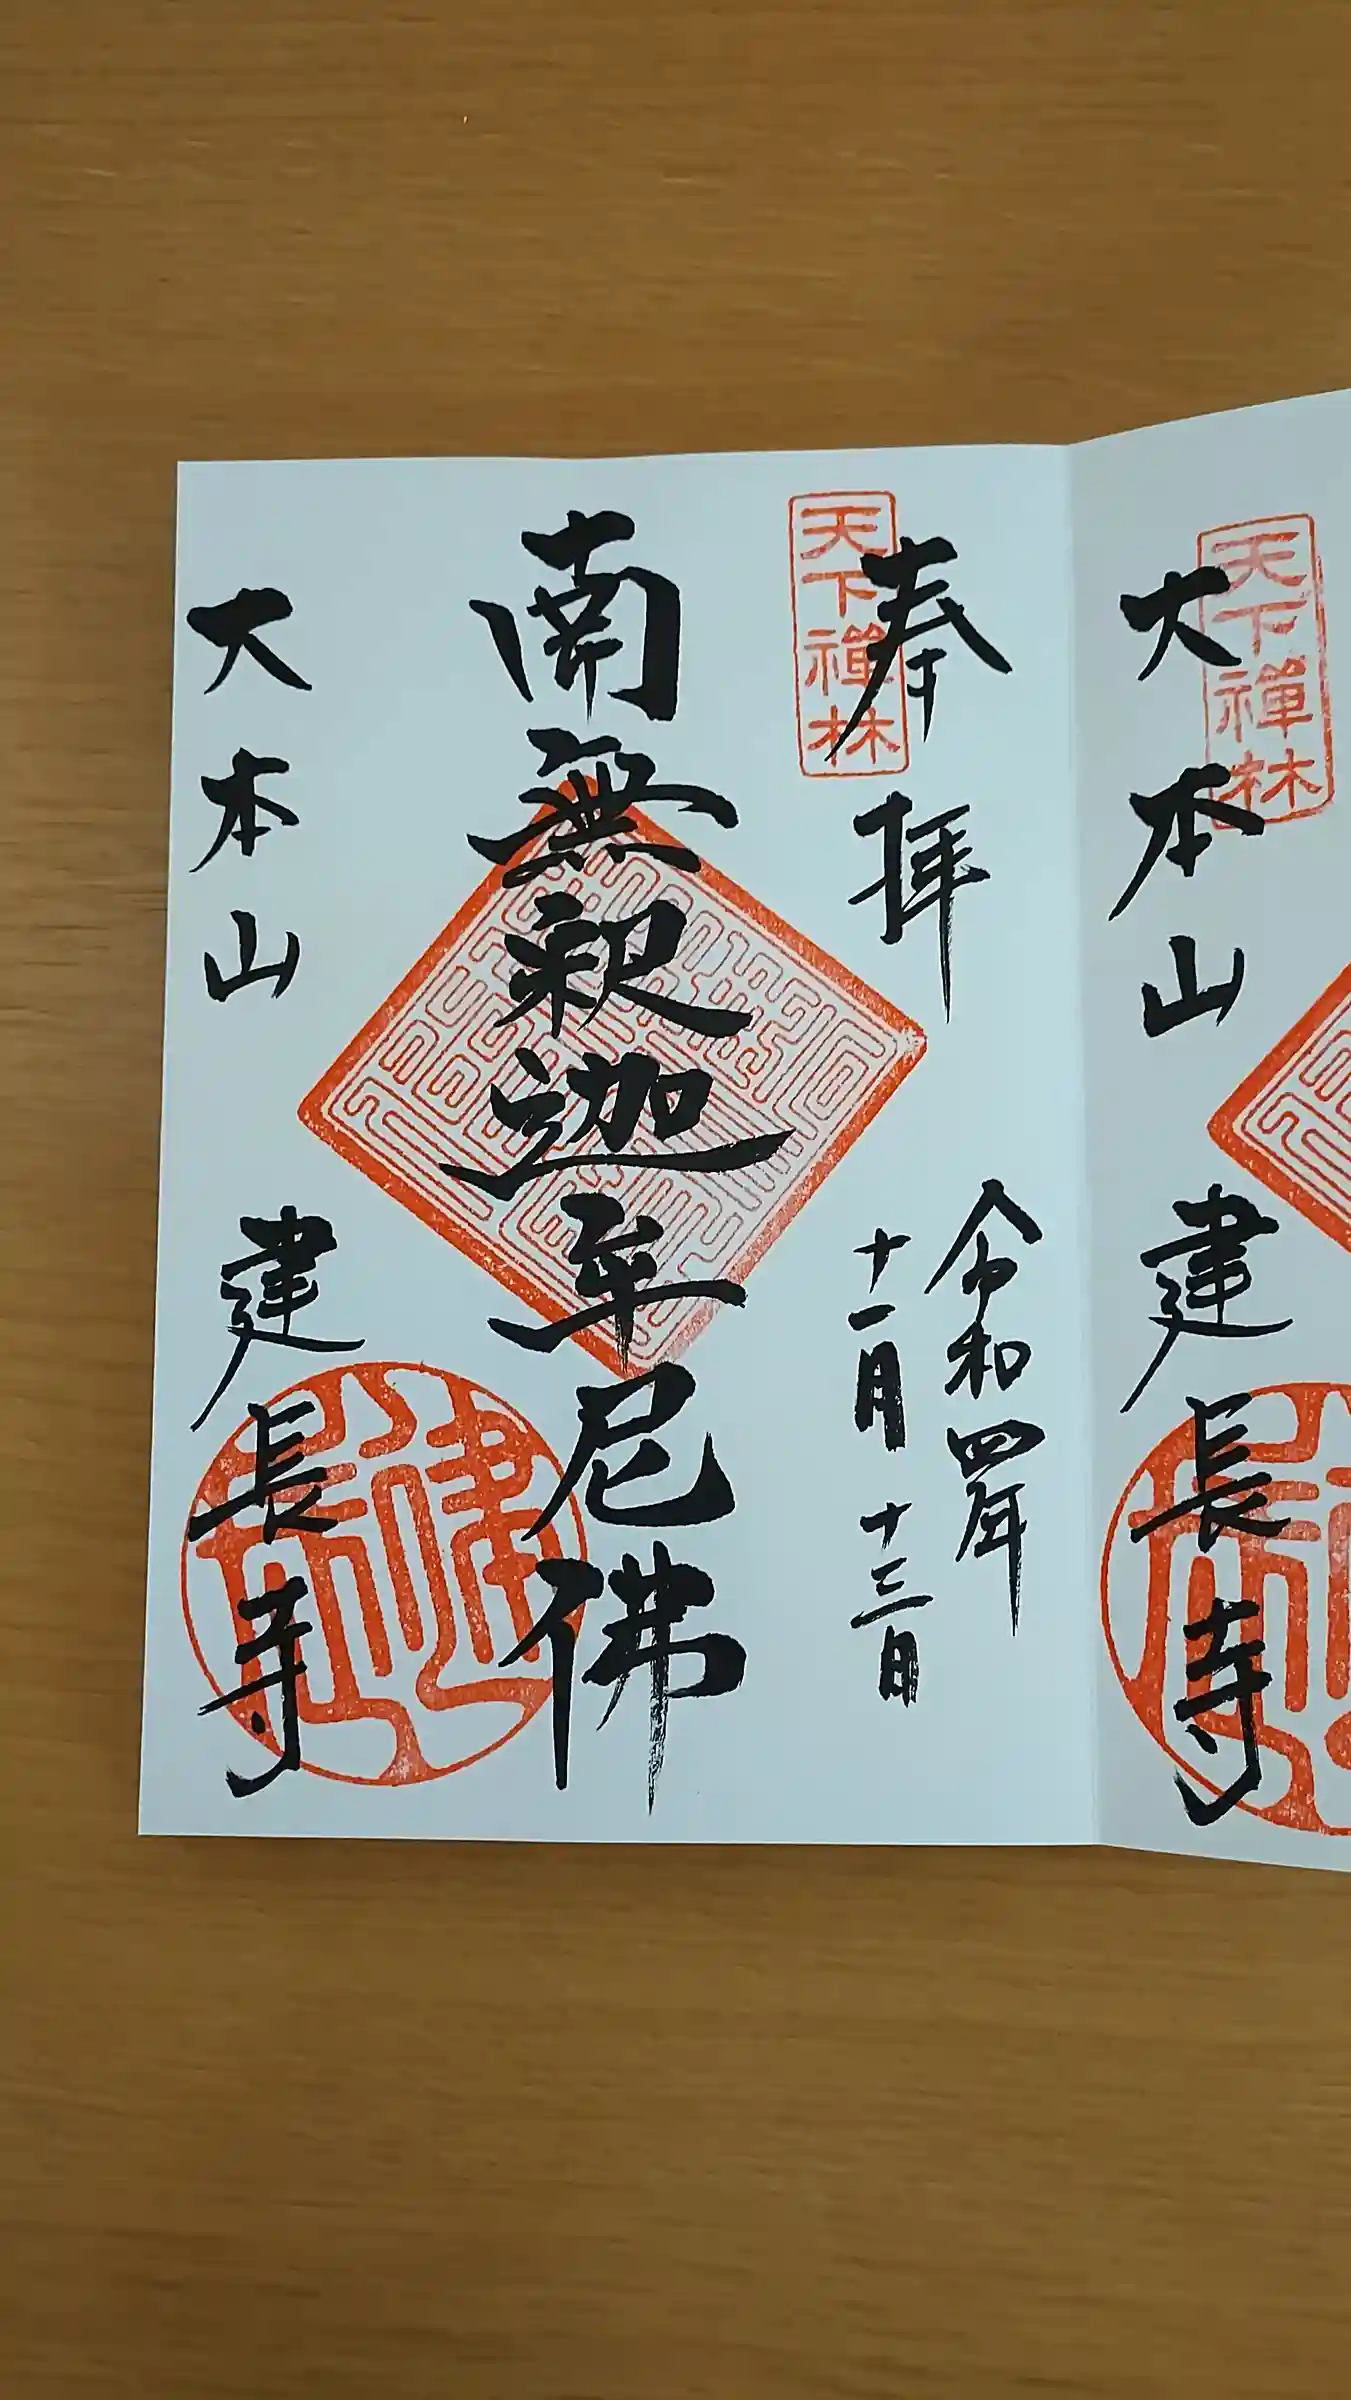 大本山 建長寺
天下禪林
奉拝
令和四年
十一月十三日
南無釈迦牟尼佛
大本山 建長寺
天下禪林